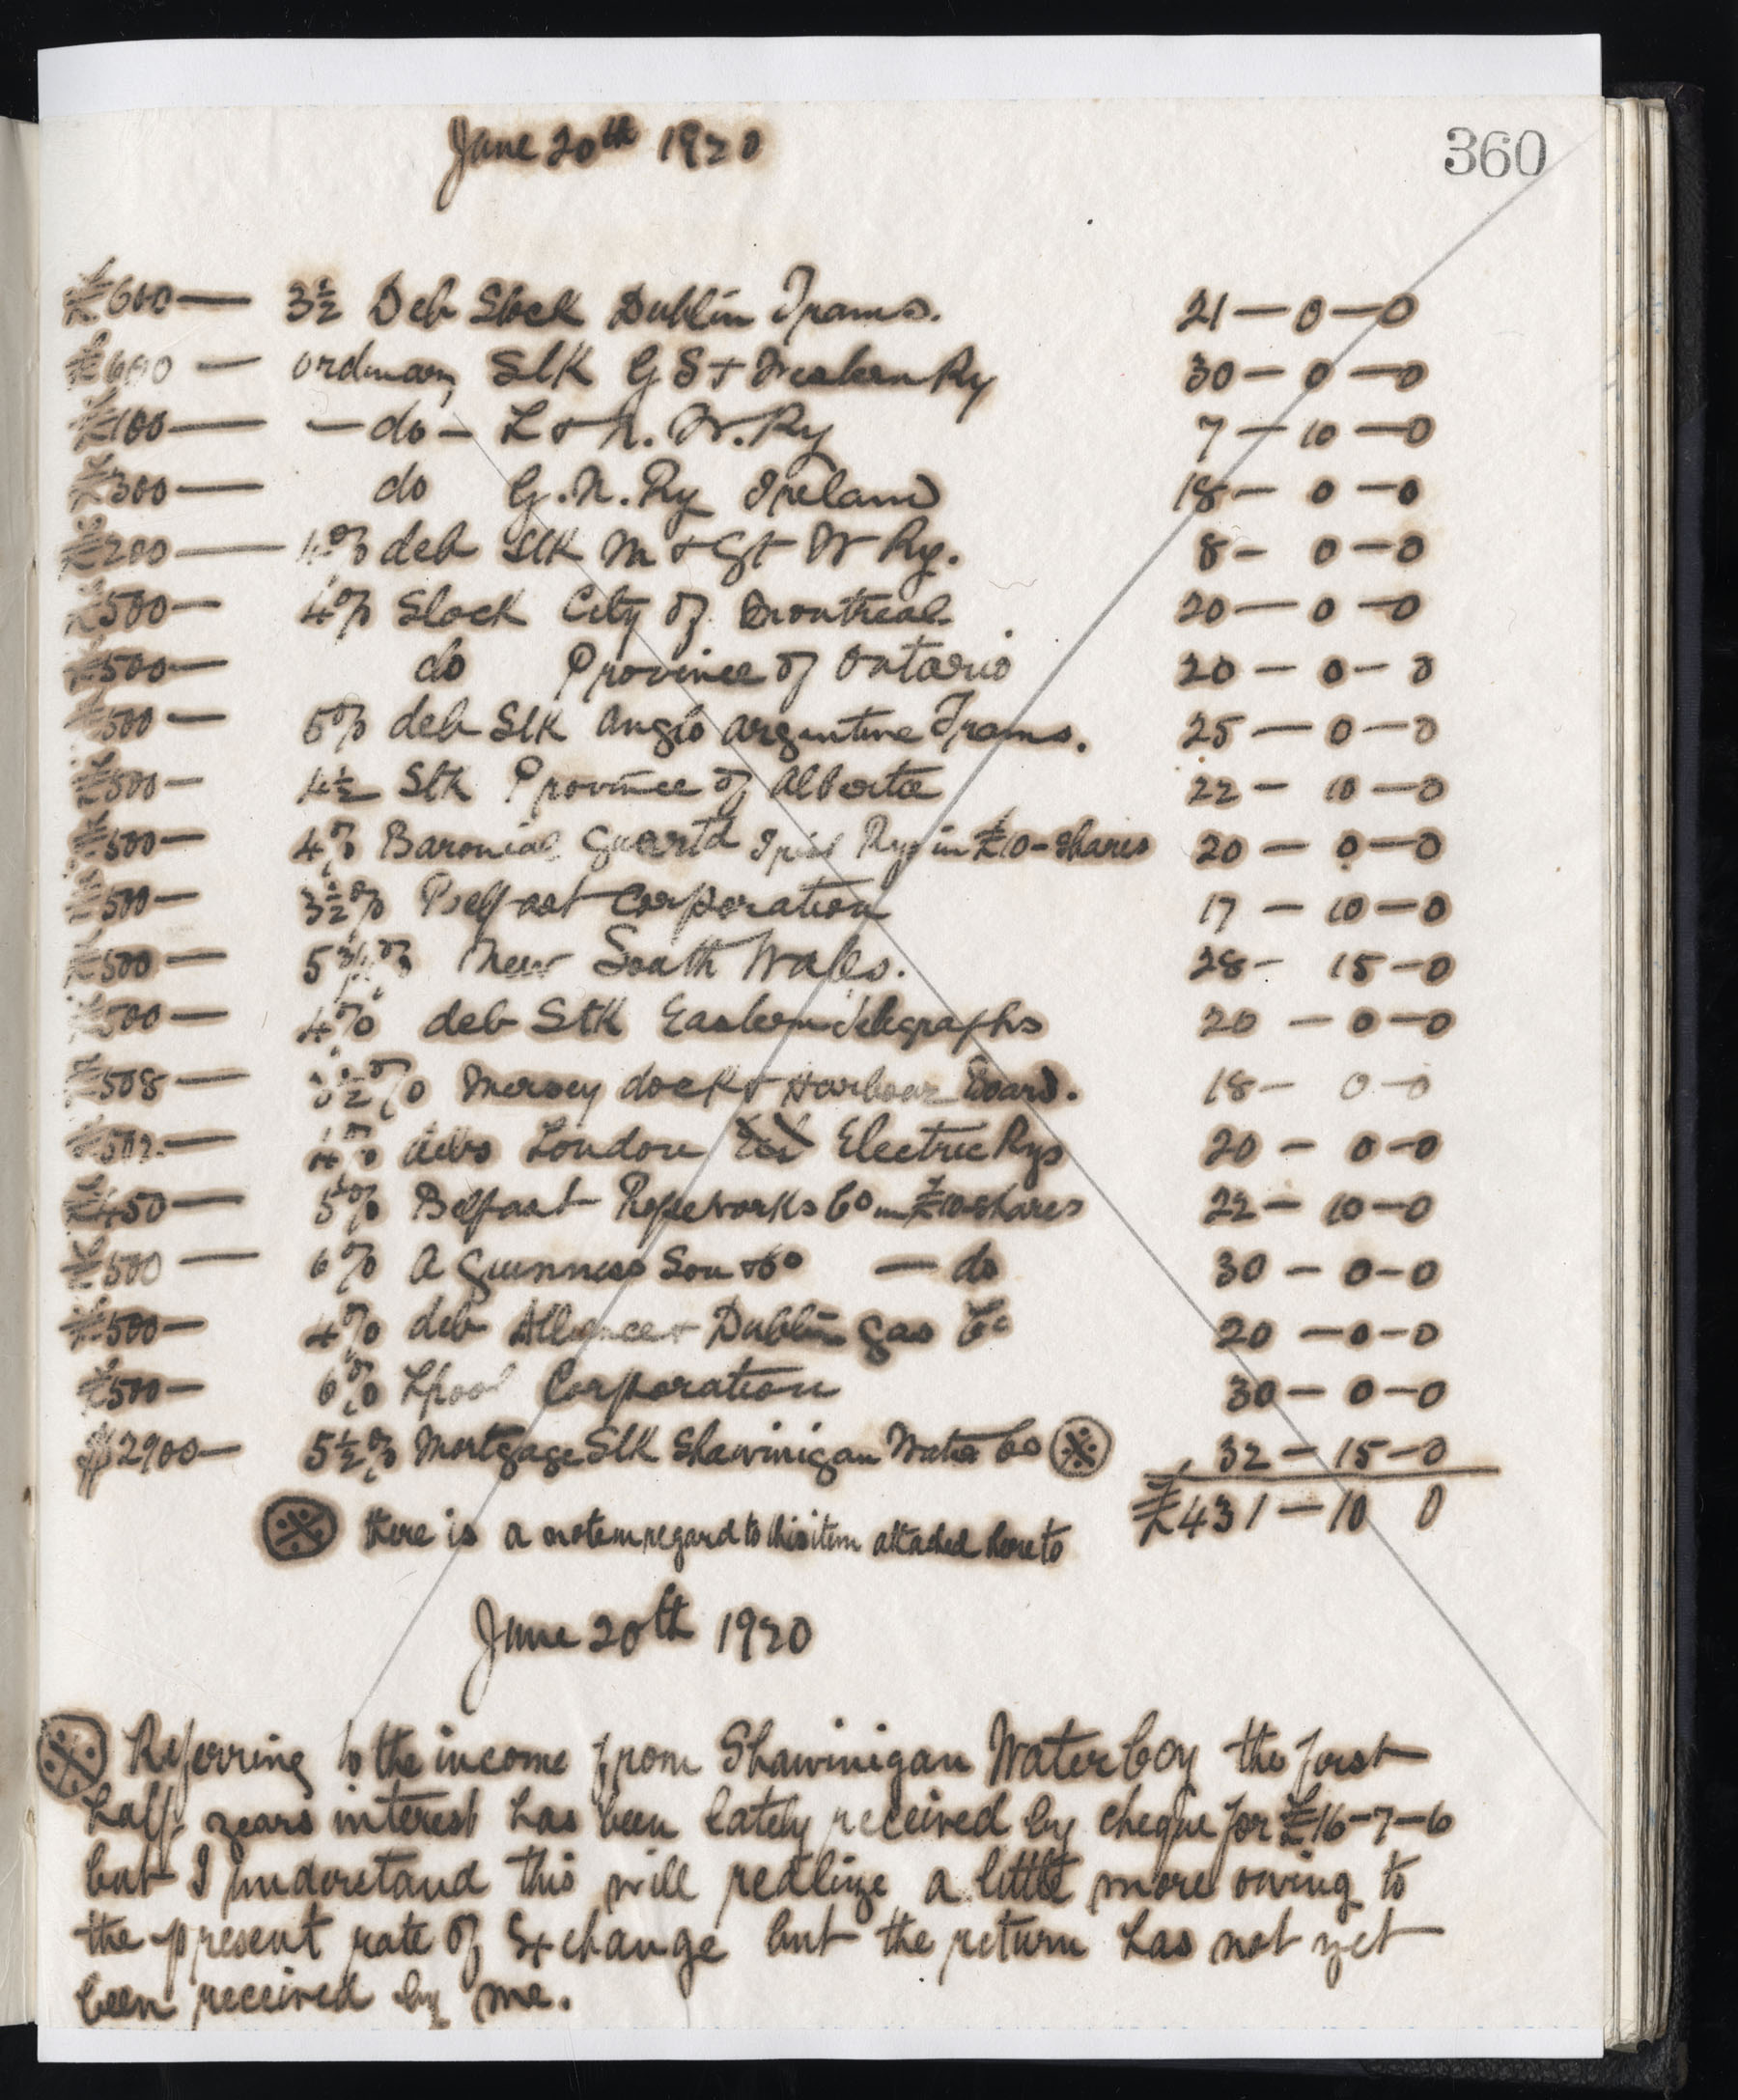 360
June 20th 1920
£600— 3½ Deb Stock Dublin Trams. 21—0—0
£600— ordinary Stk G S + Western Ry 30—0—0
£100— —do— L & N. W. Ry 7—10—0
£300— do G. N. Ry Ireland 18—0—0
£200— 4% deb Stk M & Gt W Ry. 8—0—0
£500— 4% Stock City of Montreal 20—0—0
£500— do Province of Ontario 20—0—0
£500— 5% deb Stk Anglo Argentine Trams. 25—0—0
£500— 4½ Stk Province of Alberta 22—10—0
£500— 4% Baronial Guartd Irish Rys in £10-shares 20—0—0
£500— 3½% Belfast Corporation 17—10—0
£500— 5¾% New South Wales. 28—15—0
£500— 4% deb Stk Eastern Telegraphs 20—0—0
£508— 3½% Mersey dock & Harbour Board. 18—0—0
£502— 4% debs London Electric Rys 20—0—0
£450— 5% Belfast Ropeworks Co in £10 shares 22—10—0
£500— 6% A Guinness Son & Co — do 30—0—0
£500— 4% deb Alliance & Dublin Gas Co 20—0—0
£500— 6% Lpool Corporation 30—0—0
$2900— 5½% Mortgage Stk Shawinigan Water Co ※ 32—15—0
£431—10 0
※ there is a note in regard to this item attached hereto
June 20th 1920
※ Referring to the income from Shawinigan Water Coy the first
half years interest has been lately received by cheque for £16-7-6
but I understand this will realize a little more owing to
the present rate of Exchange but the return has not yet
been received by me.